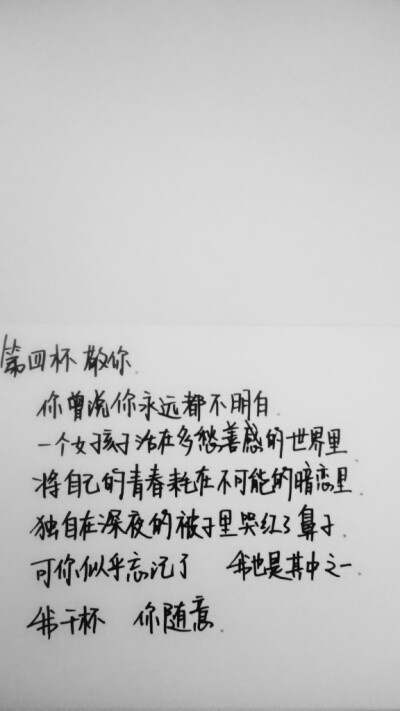 第四杯 敬你.
你曾说你永远都不明白.
一个女孩子活在多愁善感的世界里
将自己的青春耗在不可能的暗恋里
独自在深夜的被子里哭红了鼻子.
可你似乎忘记了 我也是其中之一.
我干杯 你随意.